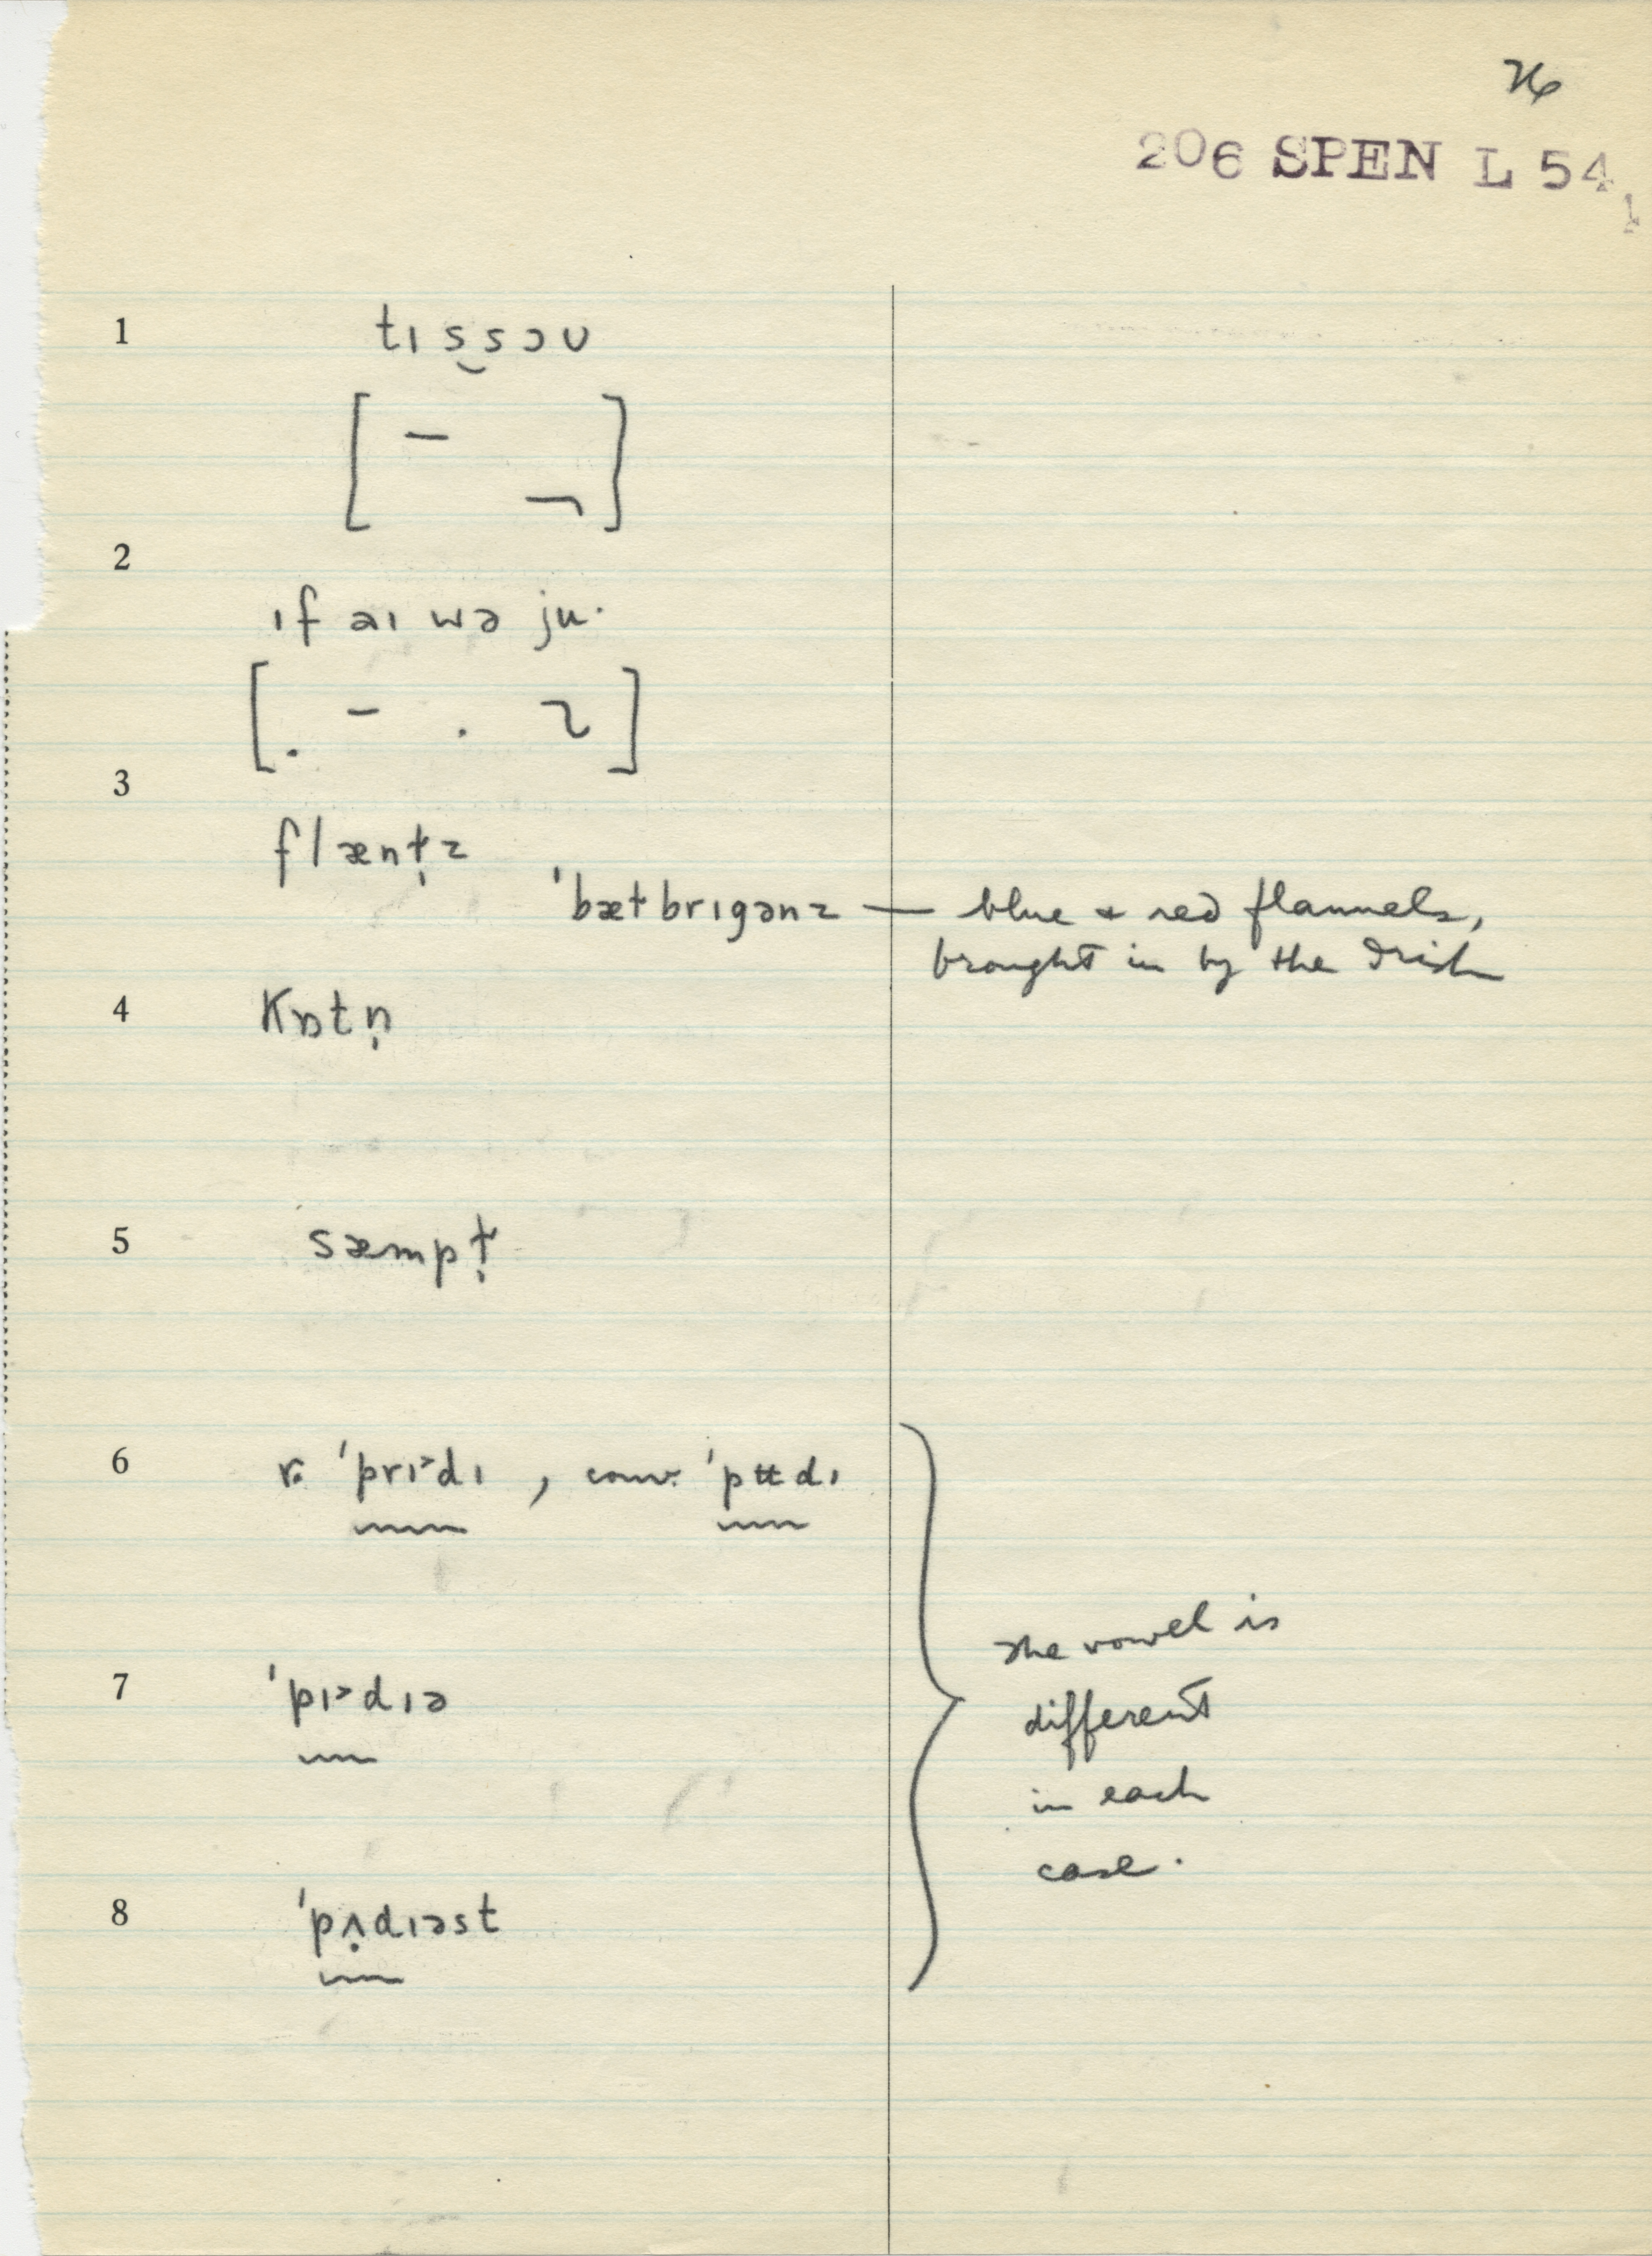 206 SPEN L 54
1 tɪs̮sɔʊ
2
ɪf aɪ wə ju·
3
flænɫ̩z
ˈbæɫbrɪgənz — blue & red flannels,
brought in by the Irish
4 Kɒtn̩
5 sæmpɫ̩
6 r. ˈprɪ˃dɪ , conv. ˈpʊdɪ
The vowel is
7 ˈpɪ˃dɪə
different
in each
case.
8 ˈpʌ̣dɪəst